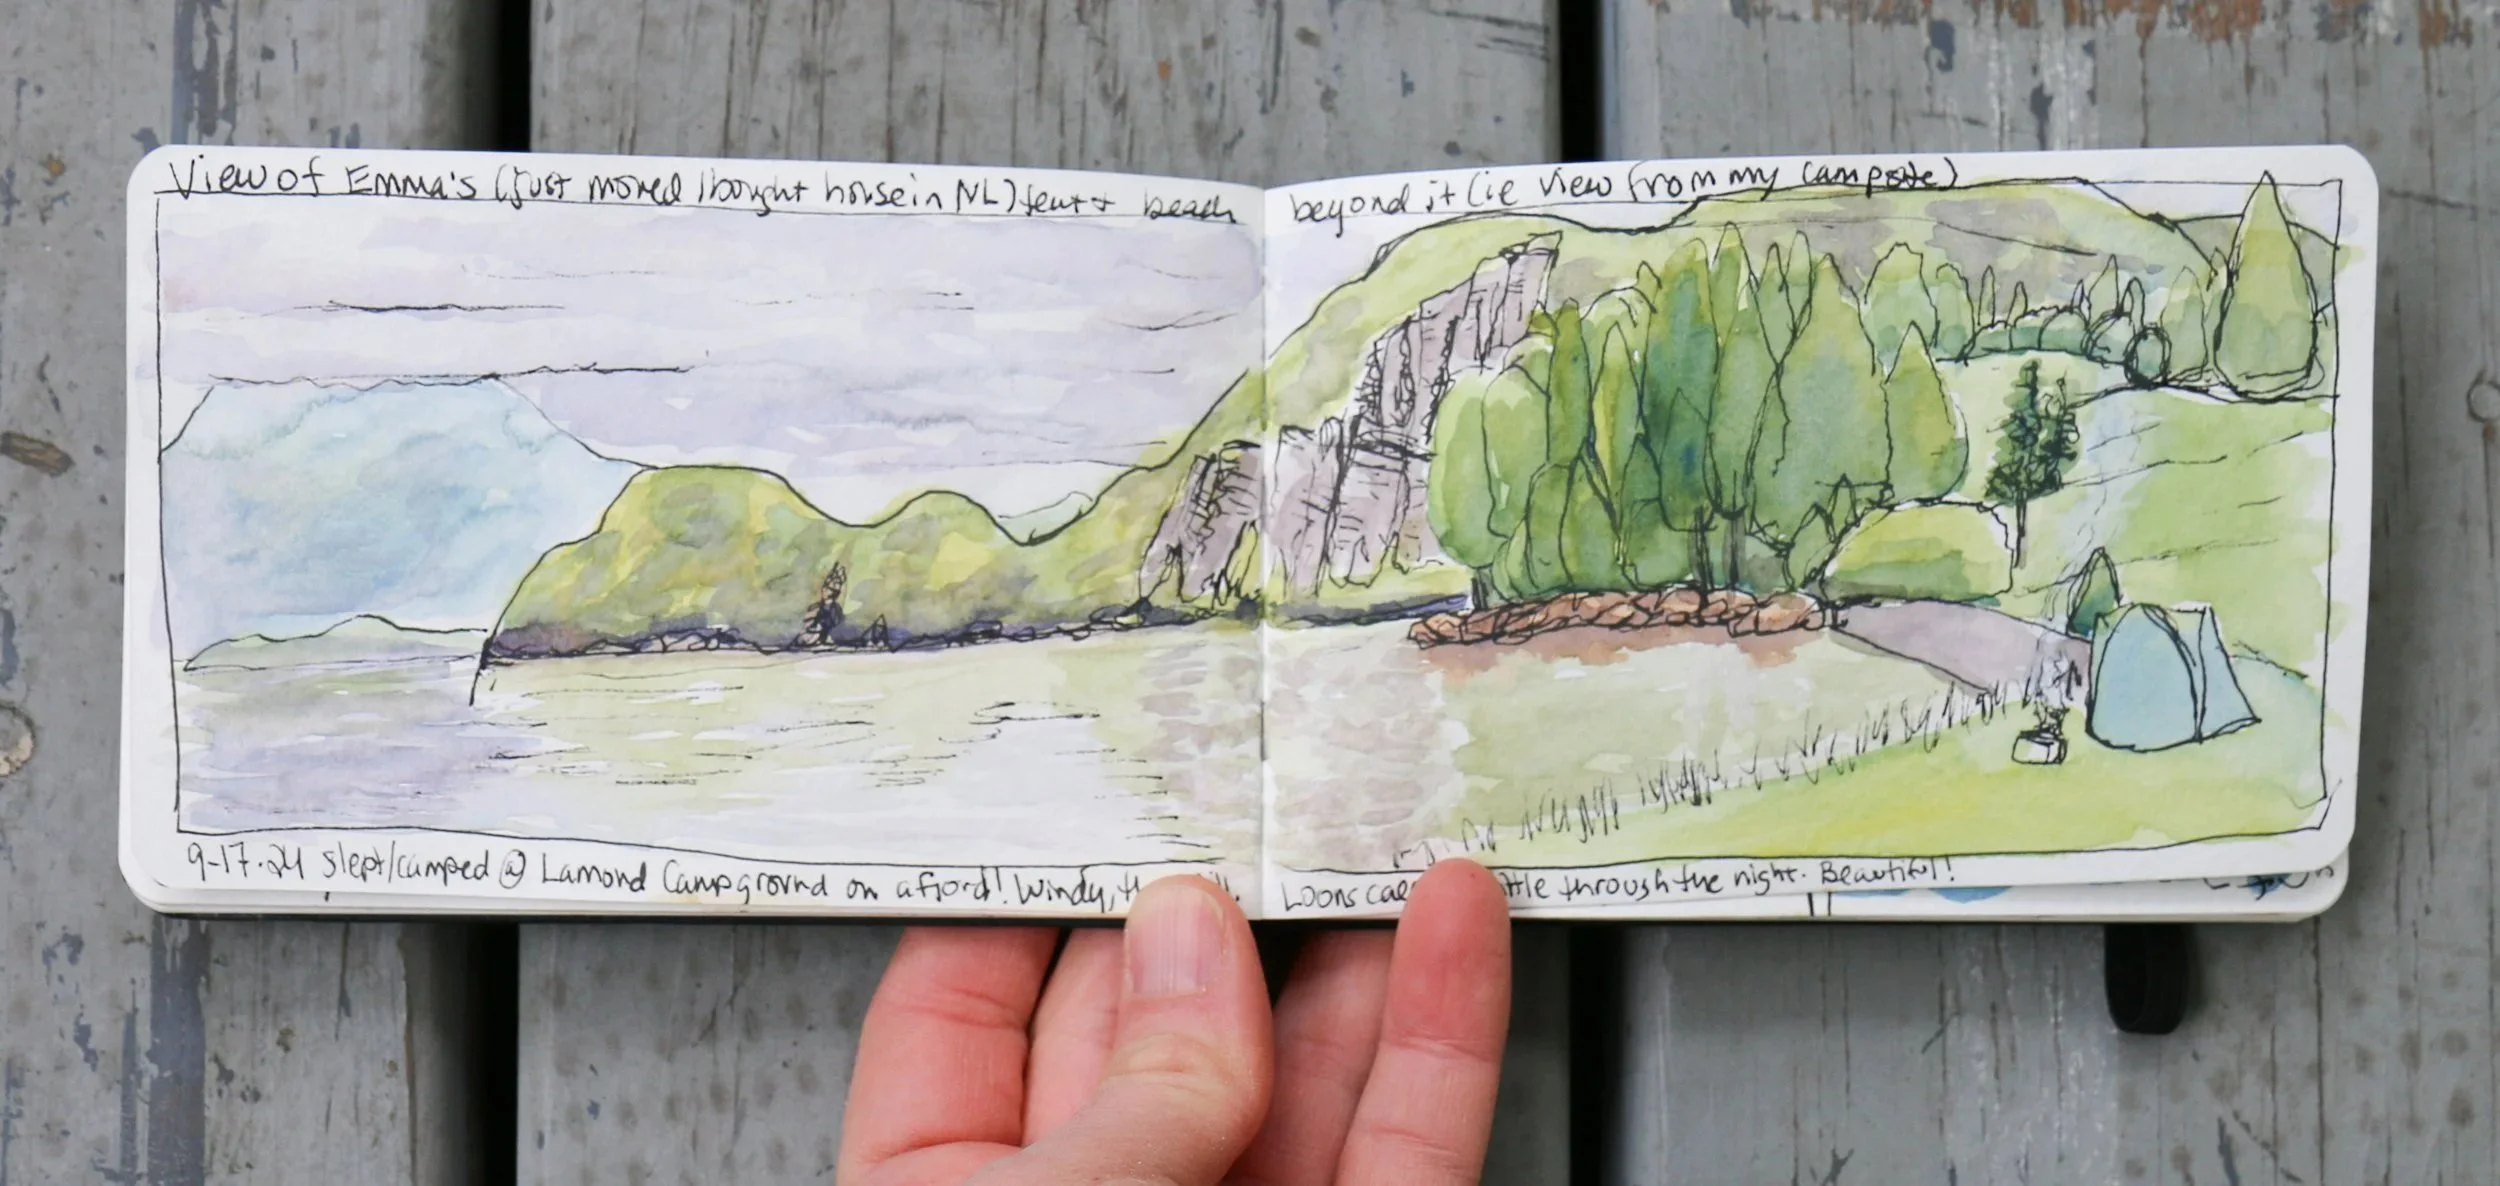 View of Emma's (just moved/bought house in NL) tent + beach beyond it (ie view from my campsite)
9-17-24 slept/camped @ Lamond Campground on a fjord! Windy, Loons through the night. Beautiful!